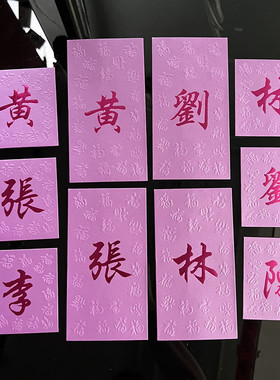 黄
黄
劉
林
張
劉
李
張
林
陳